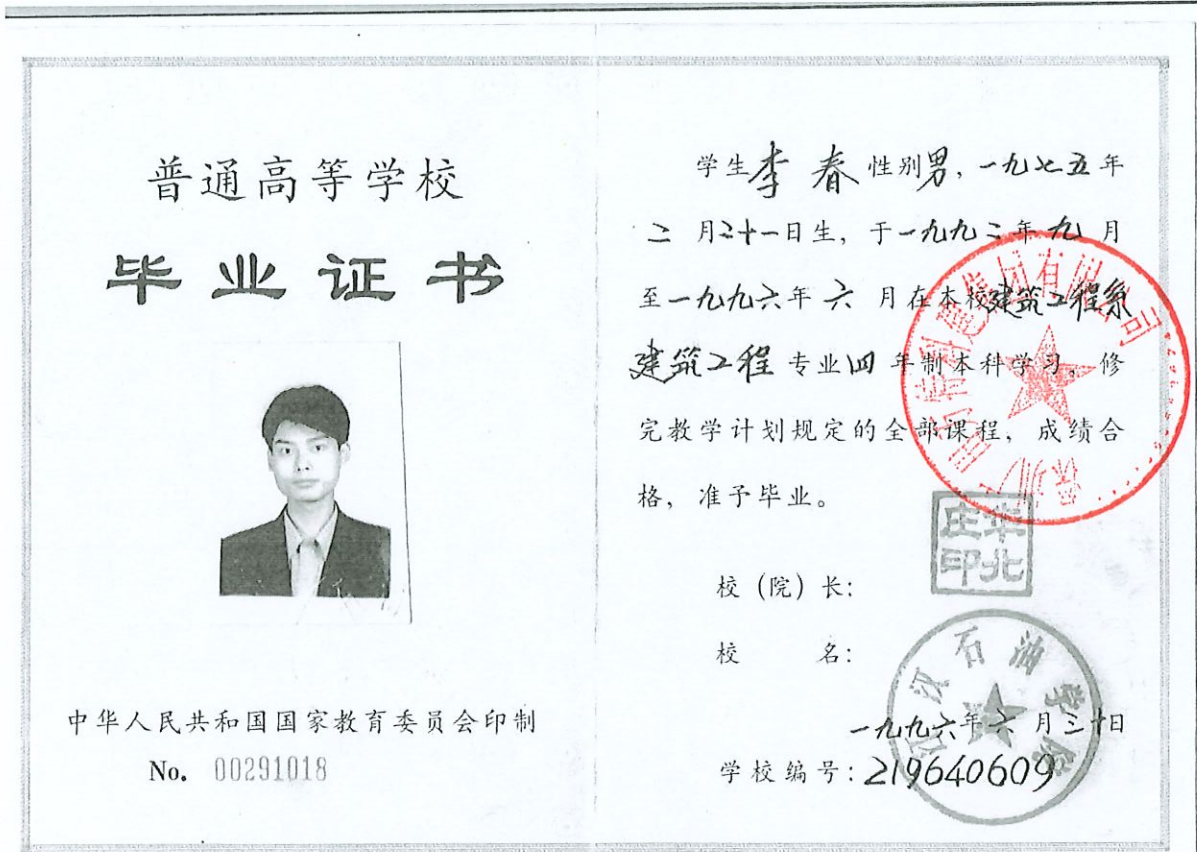 普通高等学校
毕业证书
中华人民共和国国家教育委员会印制
No. 00291018
学生李春性别男，一九七五年
二月二十一日生，于一九九二年九月
至一九九六年六月在本校建筑工程系
建筑工程专业四年制本科学习，修
完教学计划规定的全部课程，成绩合
格，准予毕业。
校（院）长：
华北庄印
校名：
汉石油学院
一九九六年六月三十日
学校编号：219640609
集团有限公司
深圳